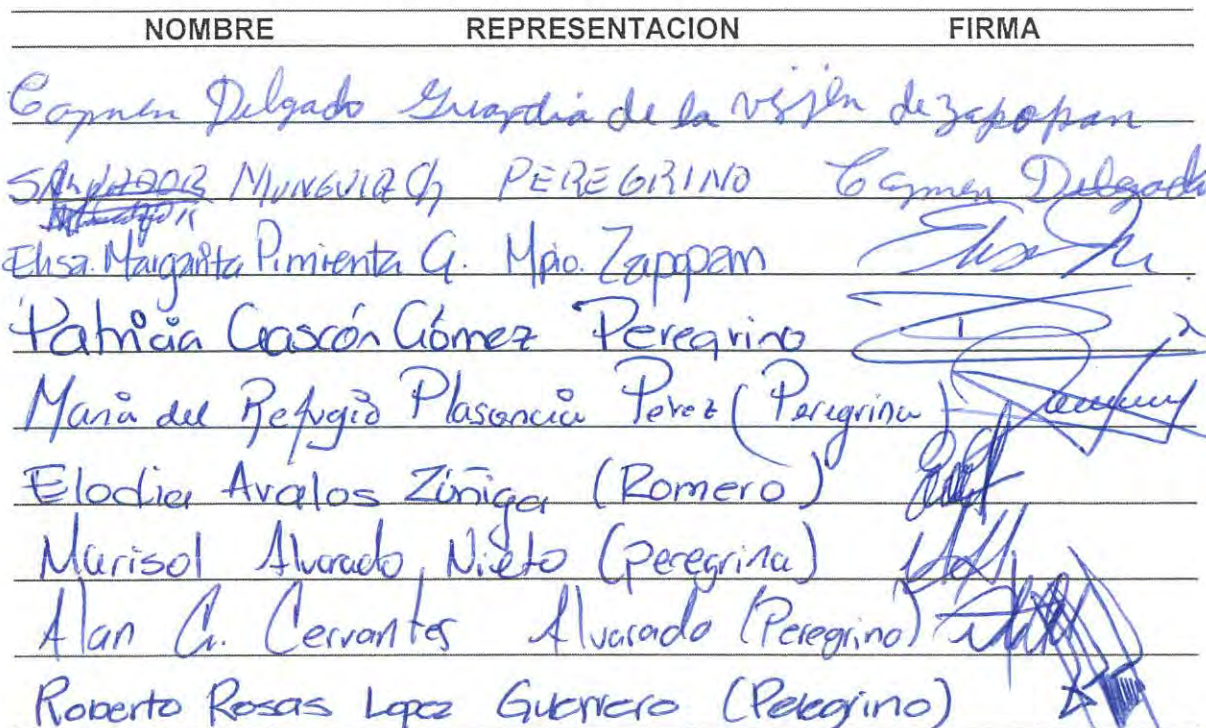 NOMBRE REPRESENTACION FIRMA
Carmen Delgado Guardia de la virjen de zapopan
MUNGUIA Ch PEREGRINO Carmen Delgado
Elisa Margarita Pimienta G. Mpio. Zapopan
Patricia Gascón Gómez Peregrino
Maria del Refugio Plasencia Perez (Peregrina)
Elodia Avalos Zúñiga (Romero)
Marisol Alvarado Nieto (peregrina)
Alan G. Cervantes Alvarado (Peregrino)
Roberto Rosas Lopez Guerrero (Peregrino)